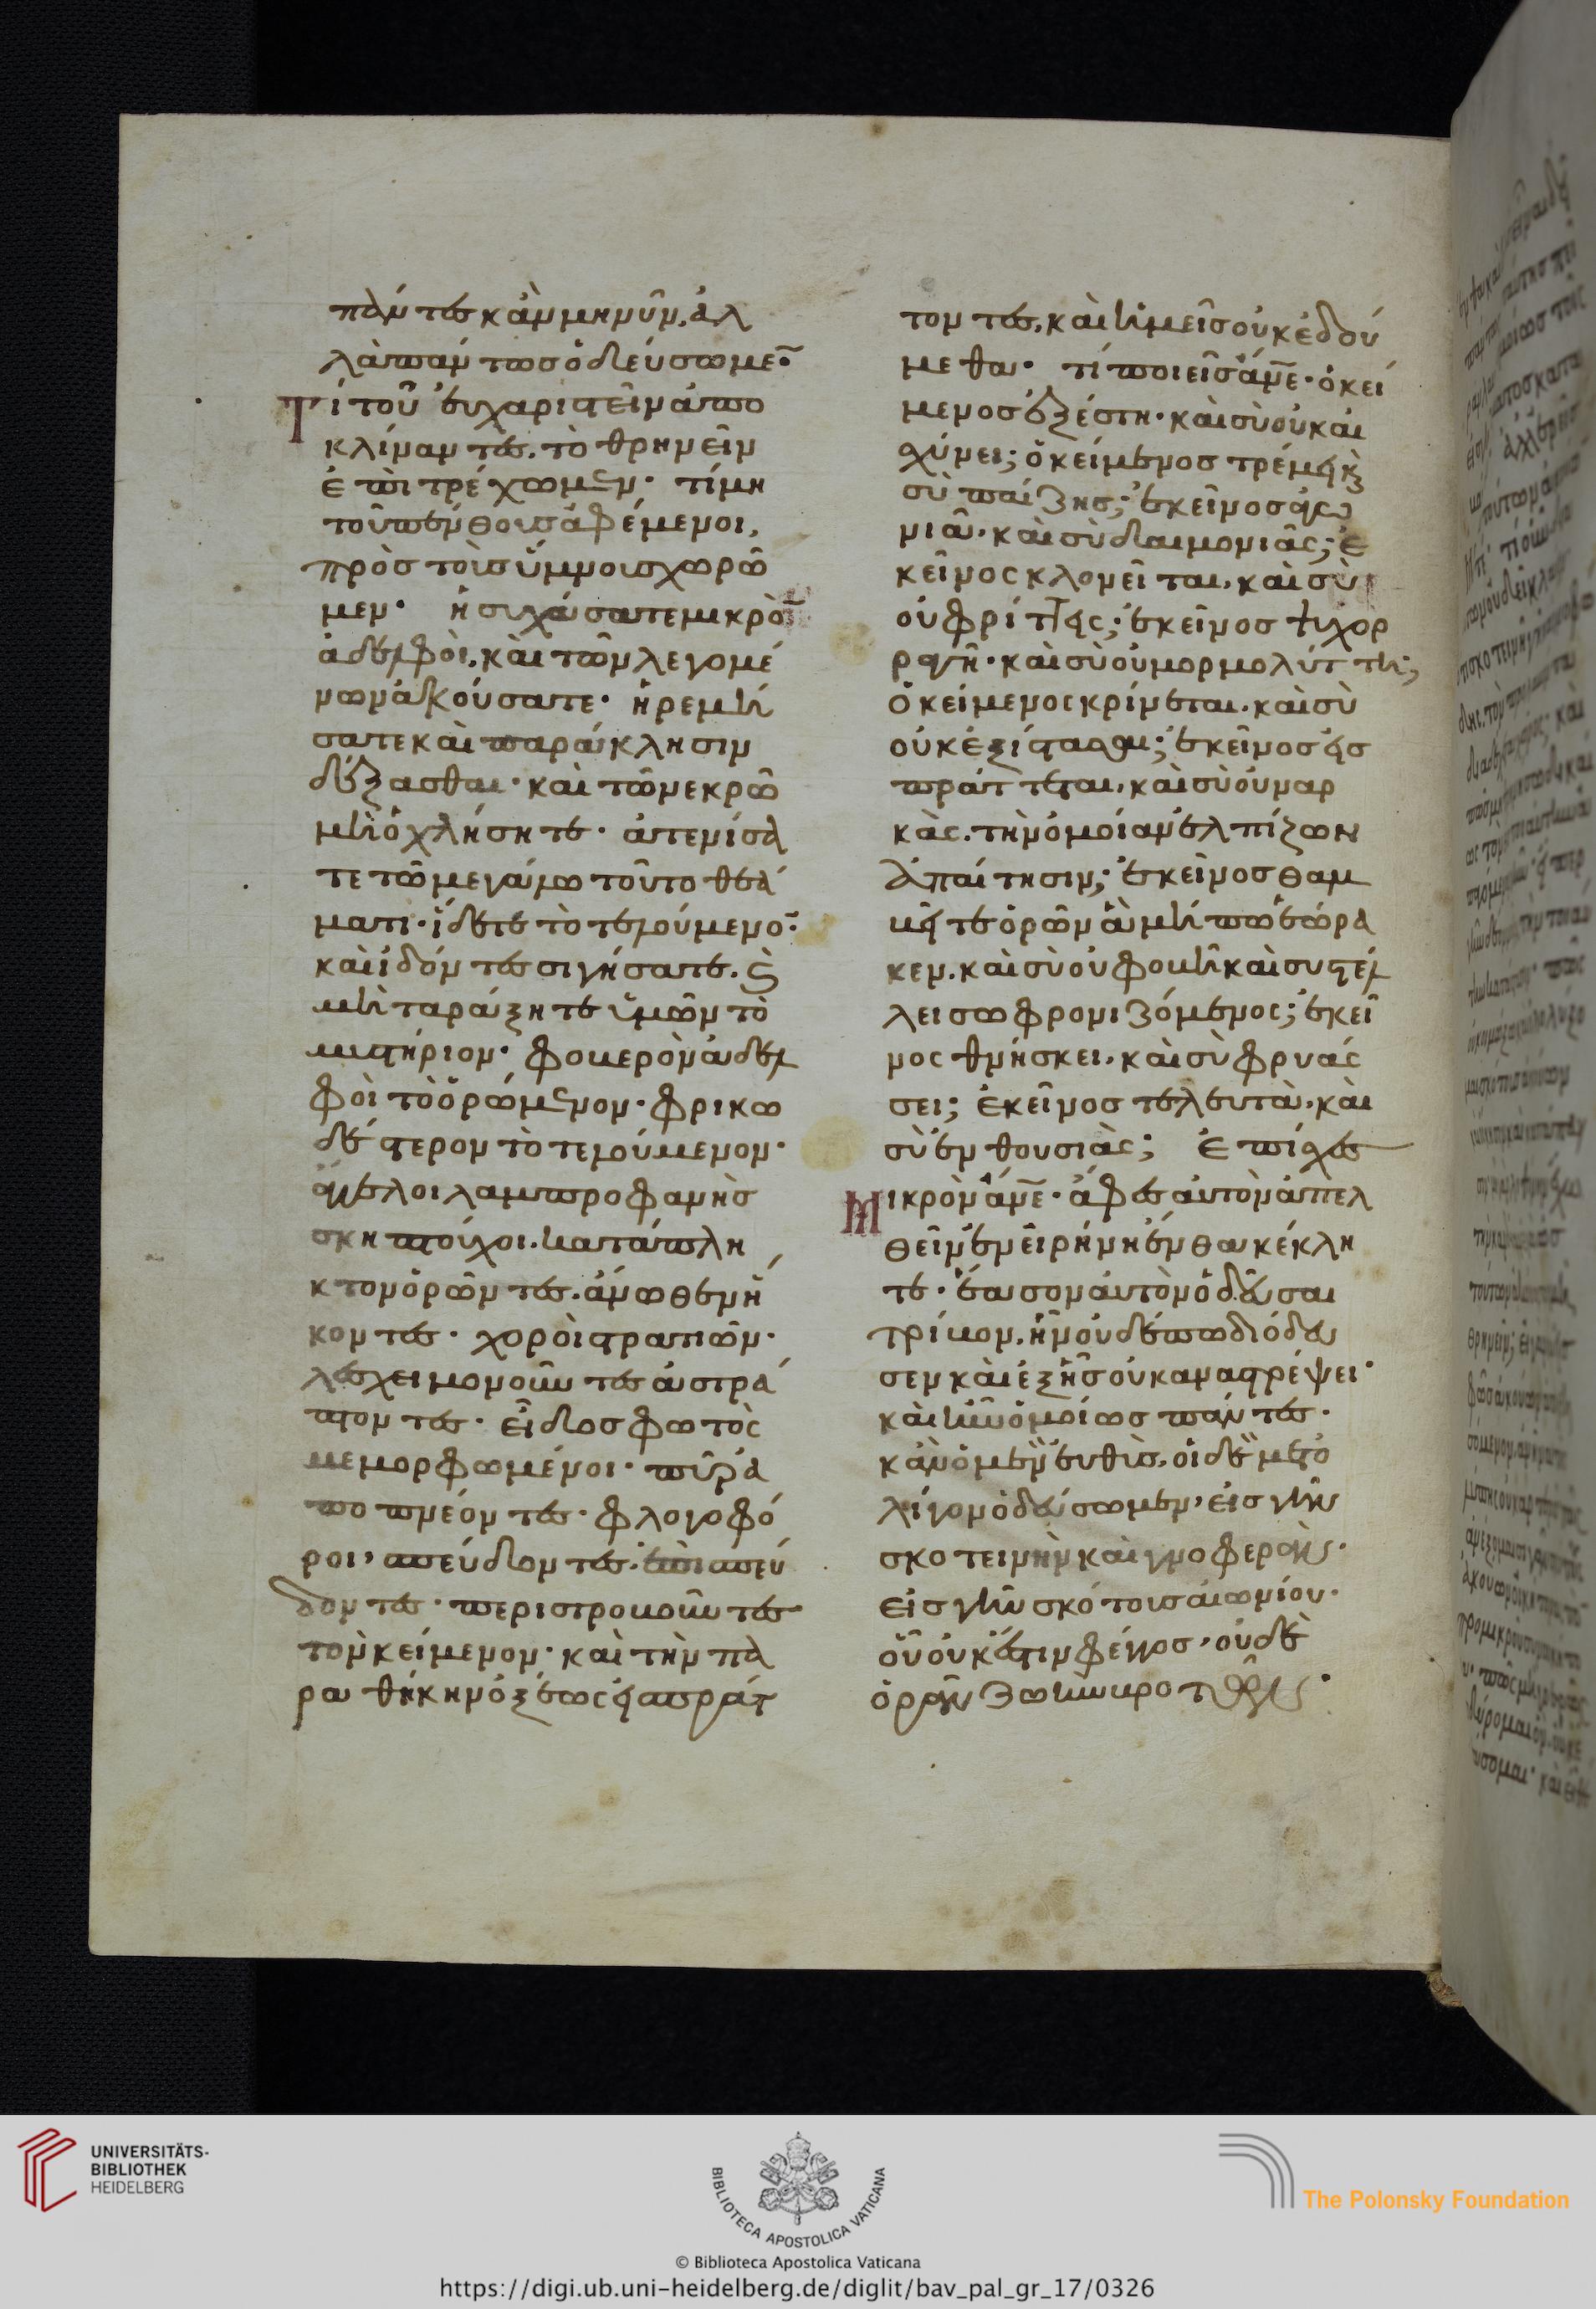 πάντες κἂν μὴ νῦν, ἀλ
λὰ πάντως ὁδεύσωμεν·
Τί τοῦ εὐχαριστεῖν ἀπο
κλίναντες, τὸ θρηνεῖν
ἐπιτρέχωμεν· τί μὴ
τοῦ πενθους ἀφέμενοι,
πρὸς τοὺς ὕμνους χωρῶ
μεν· ἡσυχάσατε μικρὸν
ἀδελφοὶ, καὶ τῶν λεγομέ
νων ἀκούσατε· ἠρεμή
σατε καὶ παράκλησιν
δέξασθαι· καὶ τῶ νεκρῶ
μὴ ὀχλήσητε· ἀτενίσα
τε τῶ μεγάλω τούτο θεά
ματι· ἴδετε τὸ τελούμενον·
καὶ ἰδόντες σιγήσατε. καὶ
μὴ ταράξητε ὑμῶν τὸ
μυστήριον· φοβερὸν ἀδελ
φοὶ τὸ ὁρώμενον· φρικω
δέστερον τὸ τελούμενον·
ἄγγελοι λαμπροφανὴς
σκηπτοῦχοι· κατάπλη
κτον ὁρῶντες· ἄνωθεν ἥ
κοντες· χοροὶ στρατιῶν·
λεγχειμονοῦντες ἀστρά
πτοντες· εἶδος φωτὸς
μεμορφωμένοι· πῦρ ἀ
ποπνέοντες· φλογοφό
ροι, σπεύδοντες· ἐπισπεύ
δοντες· περιστροβοῦντες
τὸν κείμενον· καὶ τὴν πα
ραθήκην ὀξέως εἰσπράτ
τοντες, καὶ ἡμεῖς οὐκ ἐδού
μεθα· τί ποιεῖς ἄνε· ὁ κεί
μενος ἐξέστη· καὶ σὺ οὐκ αἰ
σχύνει; ὁ κείμενος τρέμει καὶ
σὺ παίζης; ἐκεῖνος ἀγω
νιᾶ, καὶ σὺ δαιμονιᾶς; ἐ
κεῖνος κλονεῖται, καὶ σὺ
οὐ φρίττεις; ἐκεῖνος ψυχορ
ραγῆ· καὶ σὺ οὐ μορμολύττη;
ὁ κείμενος κρίνεται, καὶ σὺ
οὐκ ἐξίστασαι; ἐκεῖνος εἰσ
πράττεται, καὶ σὺ οὐ ναρ
κὰς, τὴν ὁμοίαν ἐλπίζων
ἀπαίτησιν; ἐκεῖνος θαμ
βεῖτε ὁρῶν ἃ μή πω ἑώρα
κεν, καὶ σὺ οὐ φοβῆ καὶ συστέλ
λει σωφρονιζόμενος; ἐκεῖ
νος θνήσκει, καὶ σὺ φρυάσ
σει; ἐκεῖνος τελευτὰ, καὶ
σὺ ἐνθουσιὰς; Ἐπίσχες
Μικρὸν ἄνε· ἄφες αὐτὸν ἀπελ
θεῖν ἐν εἰρήνη ἔνθα κέκλη
τε· ἔασον αὐτὸν ὁδεῦσαι
τρίβον, ἣν οὐδέπω διόδευ
σεν καὶ ἐξ ἧς οὐκ αναστρέψει·
καὶ ἡμῶν ὁμοίως πάντες·
κἂν ὁ μὲν εὐθὺς, οἱ δὲ μετ ὀ
λίγον ὁδεύσωμεν, εἰς γῆν
σκοτεινὴν καὶ γνοφερὰν·
εἰς γῆν σκότους αἰωνίου·
οὗ οὐκ ἔστιν φέγγος, οὐδὲ
ὁρᾶν ζωὴν βροτῶν·
UNIVERSITÄTS-
BIBLIOTHEK
HEIDELBERG
BIBLIOTECA APOSTOLICA VATICANA
The Polonsky Foundation
© Biblioteca Apostolica Vaticana
https://digi.ub.uni-heidelberg.de/diglit/bav_pal_gr_17/0326